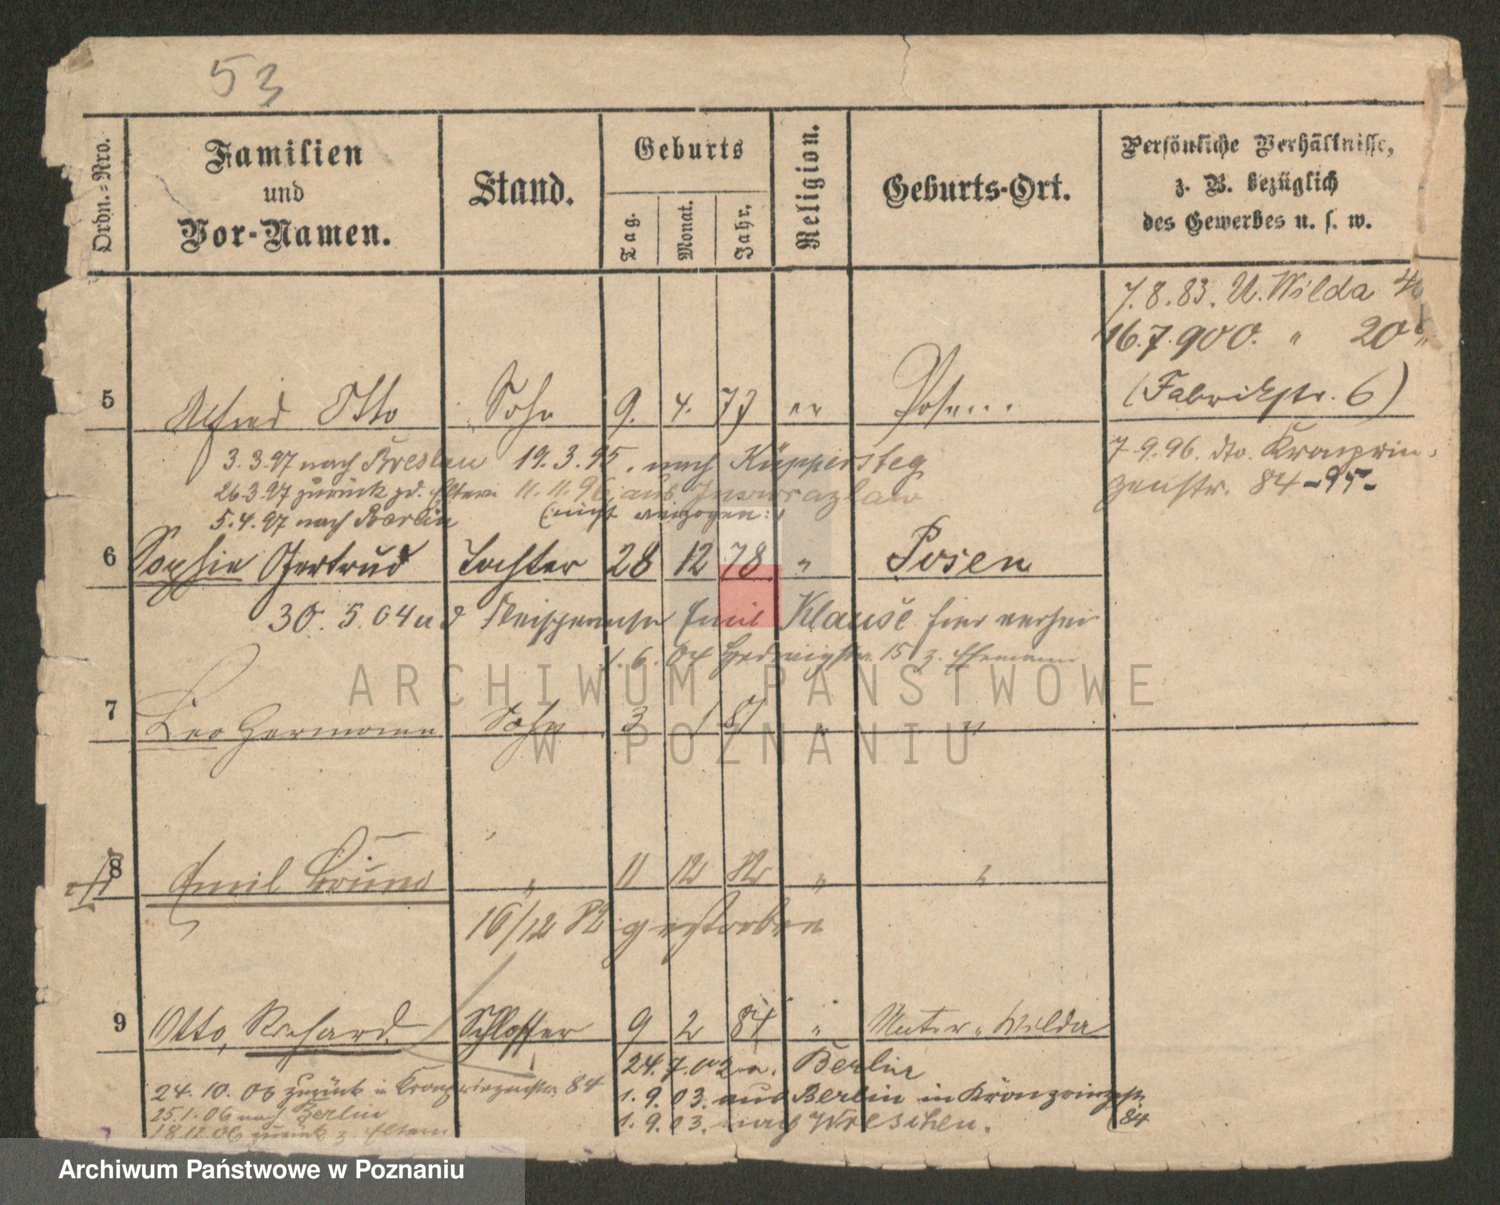 53
Ordn.-Nro.
Familien
und
Vor-Namen.
Stand.
Geburts
Tag.
Monat.
Jahr.
Religion.
Geburts-Ort.
Persönliche Verhältnisse,
z. B. bezüglich
des Gewerbes u. s. w.
7.8.83. U. Wilda
16.7.900. " 20
(Fabrikstr. 6)
5 Alfred Otto Sohn 9. 4. 77 ev Posen
3.3.97 nach Breslau 19.3.95. nach Küppersteg
26.3.97 zurück zd. Eltern 11.11.96 aus Inowrazlaw
5.4.97 nach Berlin (nicht verzogen)
7.9.96. dto. Kronprin-
zenstr. 84-95-
6 Sophie Gertrud Tochter 28 12 78 " Posen
30.5.04 u d Emil Klause hier verhei
1.6.04 Hedwigstr. 15 z. Ehemann
7 Leo Hermann Sohn 3 1 81 " "
8 Emil Bruno " 11 12 82 " "
16/12 82 gestorben
9 Otto, Richard Schlosser 9 2 84 " Unter-Wilda
24.7.02 n. Berlin
24.10.06 zurück in Kronprinzenstr. 84
1.9.03. aus Berlin in Kronprinzstr. 84
25.1.06 nach Berlin
1.9.03. nach Wreschen.
18.12.06 zurück z. Eltern
ARCHIWUM PAŃSTWOWE
W POZNANIU
Archiwum Państwowe w Poznaniu